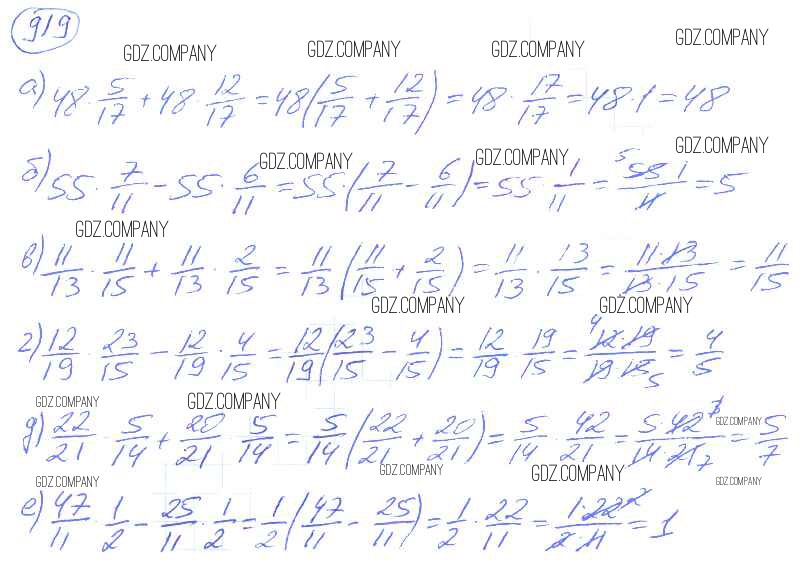 919
GDZ.COMPANY GDZ.COMPANY GDZ.COMPANY GDZ.COMPANY
а) 48 · 5/17 + 48 · 12/17 = 48(5/17 + 12/17) = 48 · 17/17 = 48 · 1 = 48
GDZ.COMPANY GDZ.COMPANY GDZ.COMPANY
б) 55 · 7/11 - 55 · 6/11 = 55 · (7/11 - 6/11) = 55 · 1/11 = 5 55 · 1/11 = 5
GDZ.COMPANY
в) 11/13 · 11/15 + 11/13 · 2/15 = 11/13 (11/15 + 2/15) = 11/13 · 13/15 = 11 · 13/13 · 15 = 11/15
GDZ.COMPANY GDZ.COMPANY
г) 12/19 · 23/15 - 12/19 · 4/15 = 12/19 (23/15 - 4/15) = 12/19 · 19/15 = 4 12 · 19/19 · 15 5 = 4/5
GDZ.COMPANY GDZ.COMPANY GDZ.COMPANY
д) 22/21 · 5/14 + 20/21 · 5/14 = 5/14 (22/21 + 20/21) = 5/14 · 42/21 = 5 · 42/14 · 21 7 = 5/7
GDZ.COMPANY GDZ.COMPANY GDZ.COMPANY GDZ.COMPANY
е) 47/11 · 1/2 - 25/11 · 1/2 = 1/2 (47/11 - 25/11) = 1/2 · 22/11 = 1 · 22 2/2 · 11 = 1